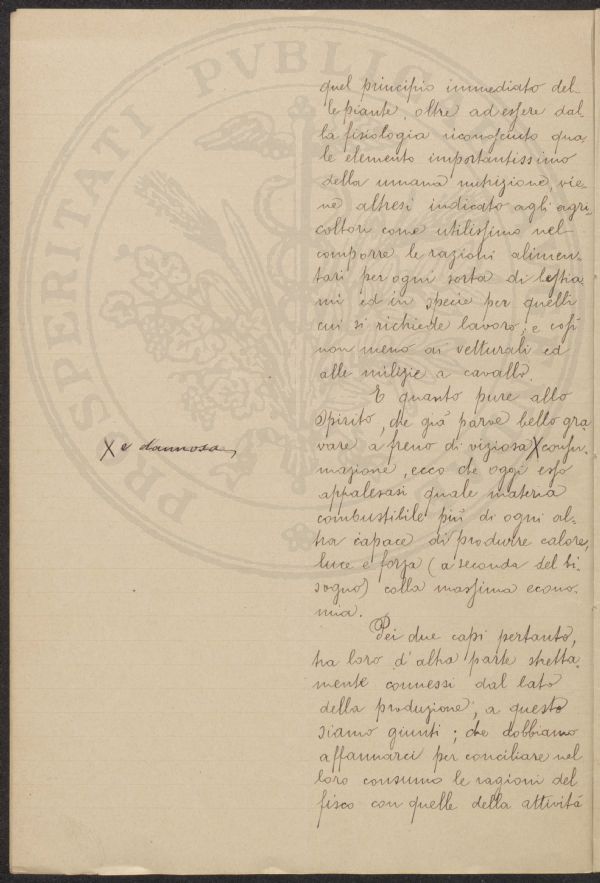 quel principio immediato del-
le piante, oltre ad essere dal-
la fisiologia riconosciuto qua-
le elemento importantissimo
della umana nutrizione, vie-
ne altresì indicato agli agri-
coltori come utilissimo nel
comporre le razioni alimen-
tari per ogni sorta di bestia-
mi ed in specie per quelli
cui si richiede lavoro; e così
non meno ai vetturali ed
alle milizie a cavallo.
E quanto pure allo
spirito, che già parve bello gra
vare a freno di viziosa X consu-
X e dannosa,
mazione, ecco che oggi esso
appalesasi quale materia
combustibile più di ogni al-
tra capace di produrre calore,
luce e forza (a seconda del bi-
sogno) colla massima econo-
mia.
Pei due capi pertanto,
tra loro d'altra parte stretta-
mente connessi dal lato
della produzione, a questo
siamo giunti; che dobbiamo
affannarci per conciliare nel
loro consumo le ragioni del
fisco con quelle della attività
PROSPERITATI PVBLIC